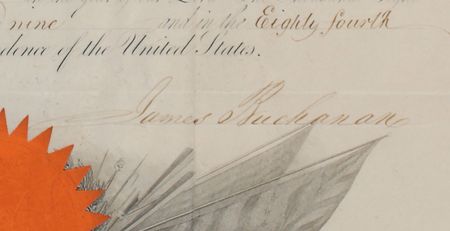 nine and in the Eighty fourth
dence of the United States.
James Buchanan